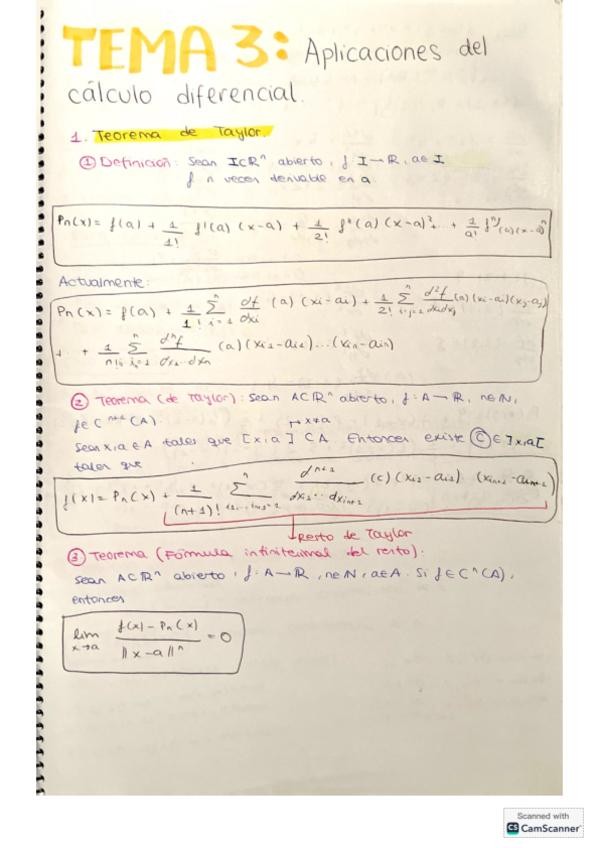 TEMA 3: Aplicaciones del
cálculo diferencial.
1. Teorema de Taylor.
① Definición: Sean I⊂ℝⁿ abierto, f: I→ℝ, a∈I
f n veces derivable en a.
Pn(x) = f(a) + 1/1! f'(a) (x-a) + 1/2! f''(a) (x-a)² + ... + 1/a! fⁿ⁾(a)(x-a)ⁿ
Actualmente:
Pn(x) = f(a) + 1/1! Σⁿ_{i=1} df/dxi (a) (xi-ai) + 1/2! Σⁿ_{i,j=1} d²f/dxidxj (a)(xi-ai)(xj-aj)
+ .. + 1/n! Σⁿ_{i=1} dⁿf/dx1...dxn (a)(xi1-ai1)...(xin-ain)
② Teorema (de Taylor): Sean A⊂ℝⁿ abierto, f: A→ℝ, n∈ℕ,
f∈Cⁿ⁺¹(A).
↦ x≠a
Sean x,a∈A tales que [x,a] ⊂A. Entonces existe ⓒ∈]x,a[
tales que
f(x) = Pn(x) + 1/(n+1)! Σⁿ_{i1,...,in+1=1} dⁿ⁺¹/dxi1...dxin+1 (c)(xi1-ai1) (xin+1-ain+1)
↳Resto de Taylor
③ Teorema (Fórmula infinitesimal del resto):
Sean A⊂ℝⁿ abierto, f: A→ℝ, n∈ℕ, a∈A. Si f∈Cⁿ(A),
entonces
lim x→a (f(x) - Pn(x)) / ||x-a||ⁿ = 0
Scanned with
CS CamScanner